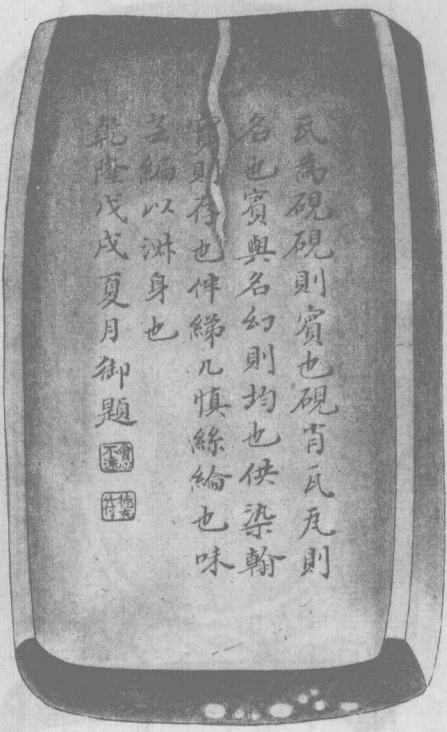 瓦為硯硯則賓也硯肖瓦瓦則
名也賓與名幻則均也供染翰
實則存也伴綈几慎絲綸也味
芸編以淑身也
乾隆戊戌夏月御題
會心不遠
德充符